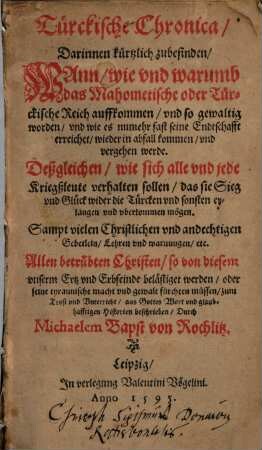 Türckische Chronica /
Darinnen kürtzlich zubefinden /
Wann / wie vnd warumb
das Mahometische oder Tür-
ckische Reich auffkommen / vnd so gewaltig
worden / vnd wie es nunmehr fast seine Endtschafft
erreichet / wieder in abfall kommen / vnd
vergehen werde.
Deßgleichen / wie sich alle vnd jede
Kriegßleute verhalten sollen / das sie Sieg
vnd Glück wider die Türcken vnd sonsten er-
langen vnd vberkommen mögen.
Sampt vielen Christlichen vnd andechtigen
Gebetlein / Lehren vnd warnungen / etc.
Allen betrübten Christen / so von diesem
vnserm Ertz vnd Erbfeinde belästiget werden / oder
seine tyrannische macht vnd gewalt fürchten müssen / zum
Trost vnd Vnterricht / aus Gottes Wort vnd glaub-
hafftigen Historien beschrieben / Durch
Michaelem Bapst von Rochlitz.
Leipzig /
In verlegung Valentini Vögelini.
Anno 1593.